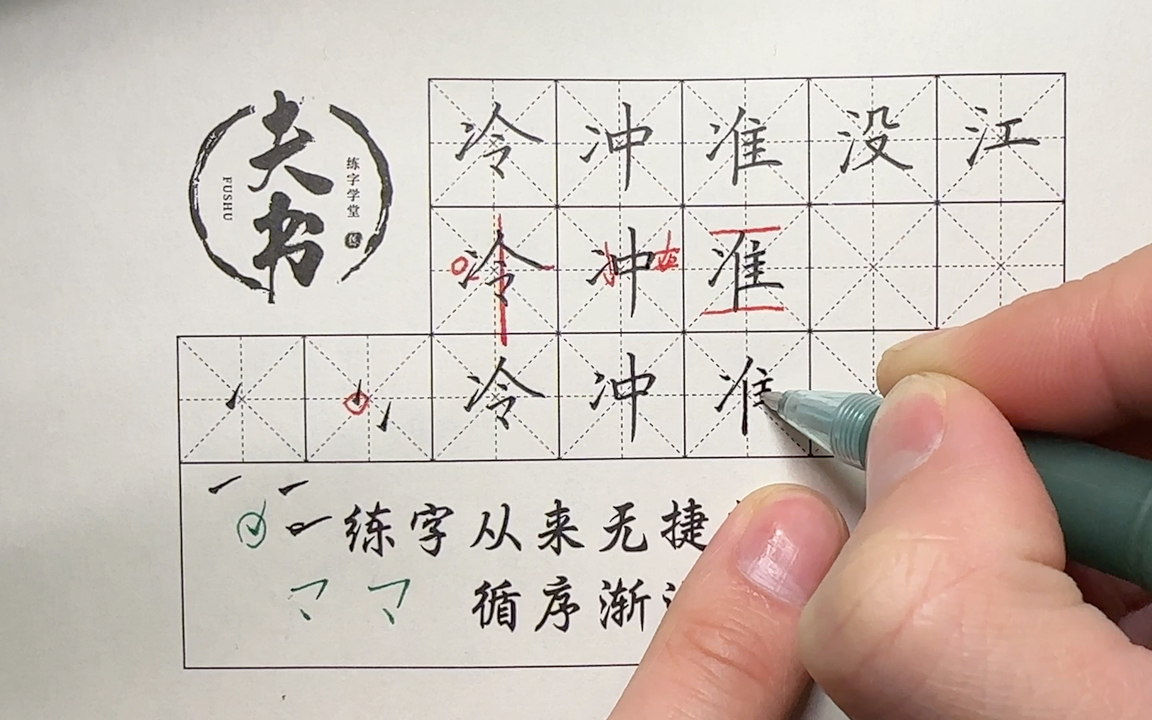 夫书
练字学堂
FUSHU
冷冲准没江
冷冲准
冷冲准
练字从来无捷
循序渐